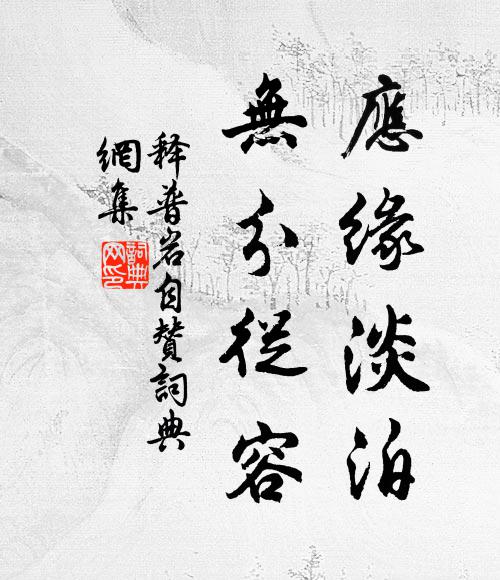 應緣淡泊
無分從容
释普岩自贊詞典
網集
詞典
网印